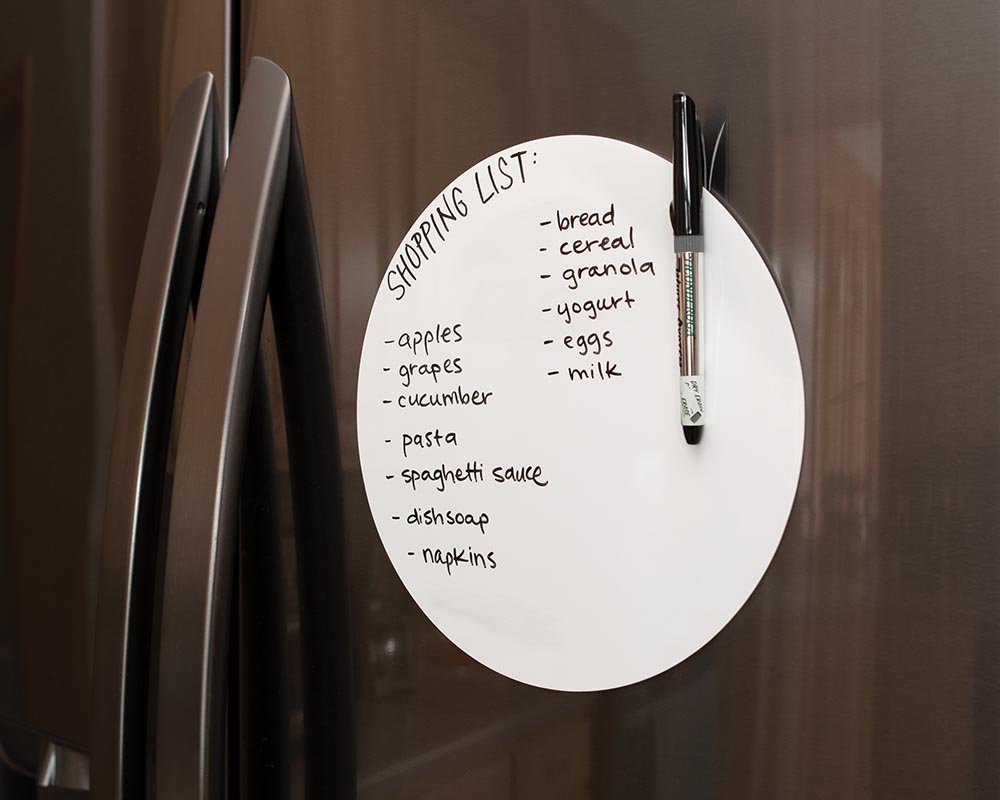 SHOPPING LIST:
- apples
- grapes
- cucumber
- pasta
- spaghetti sauce
- dishsoap
- napkins
- bread
- cereal
- granola
- yogurt
- eggs
- milk
DRY ERASE